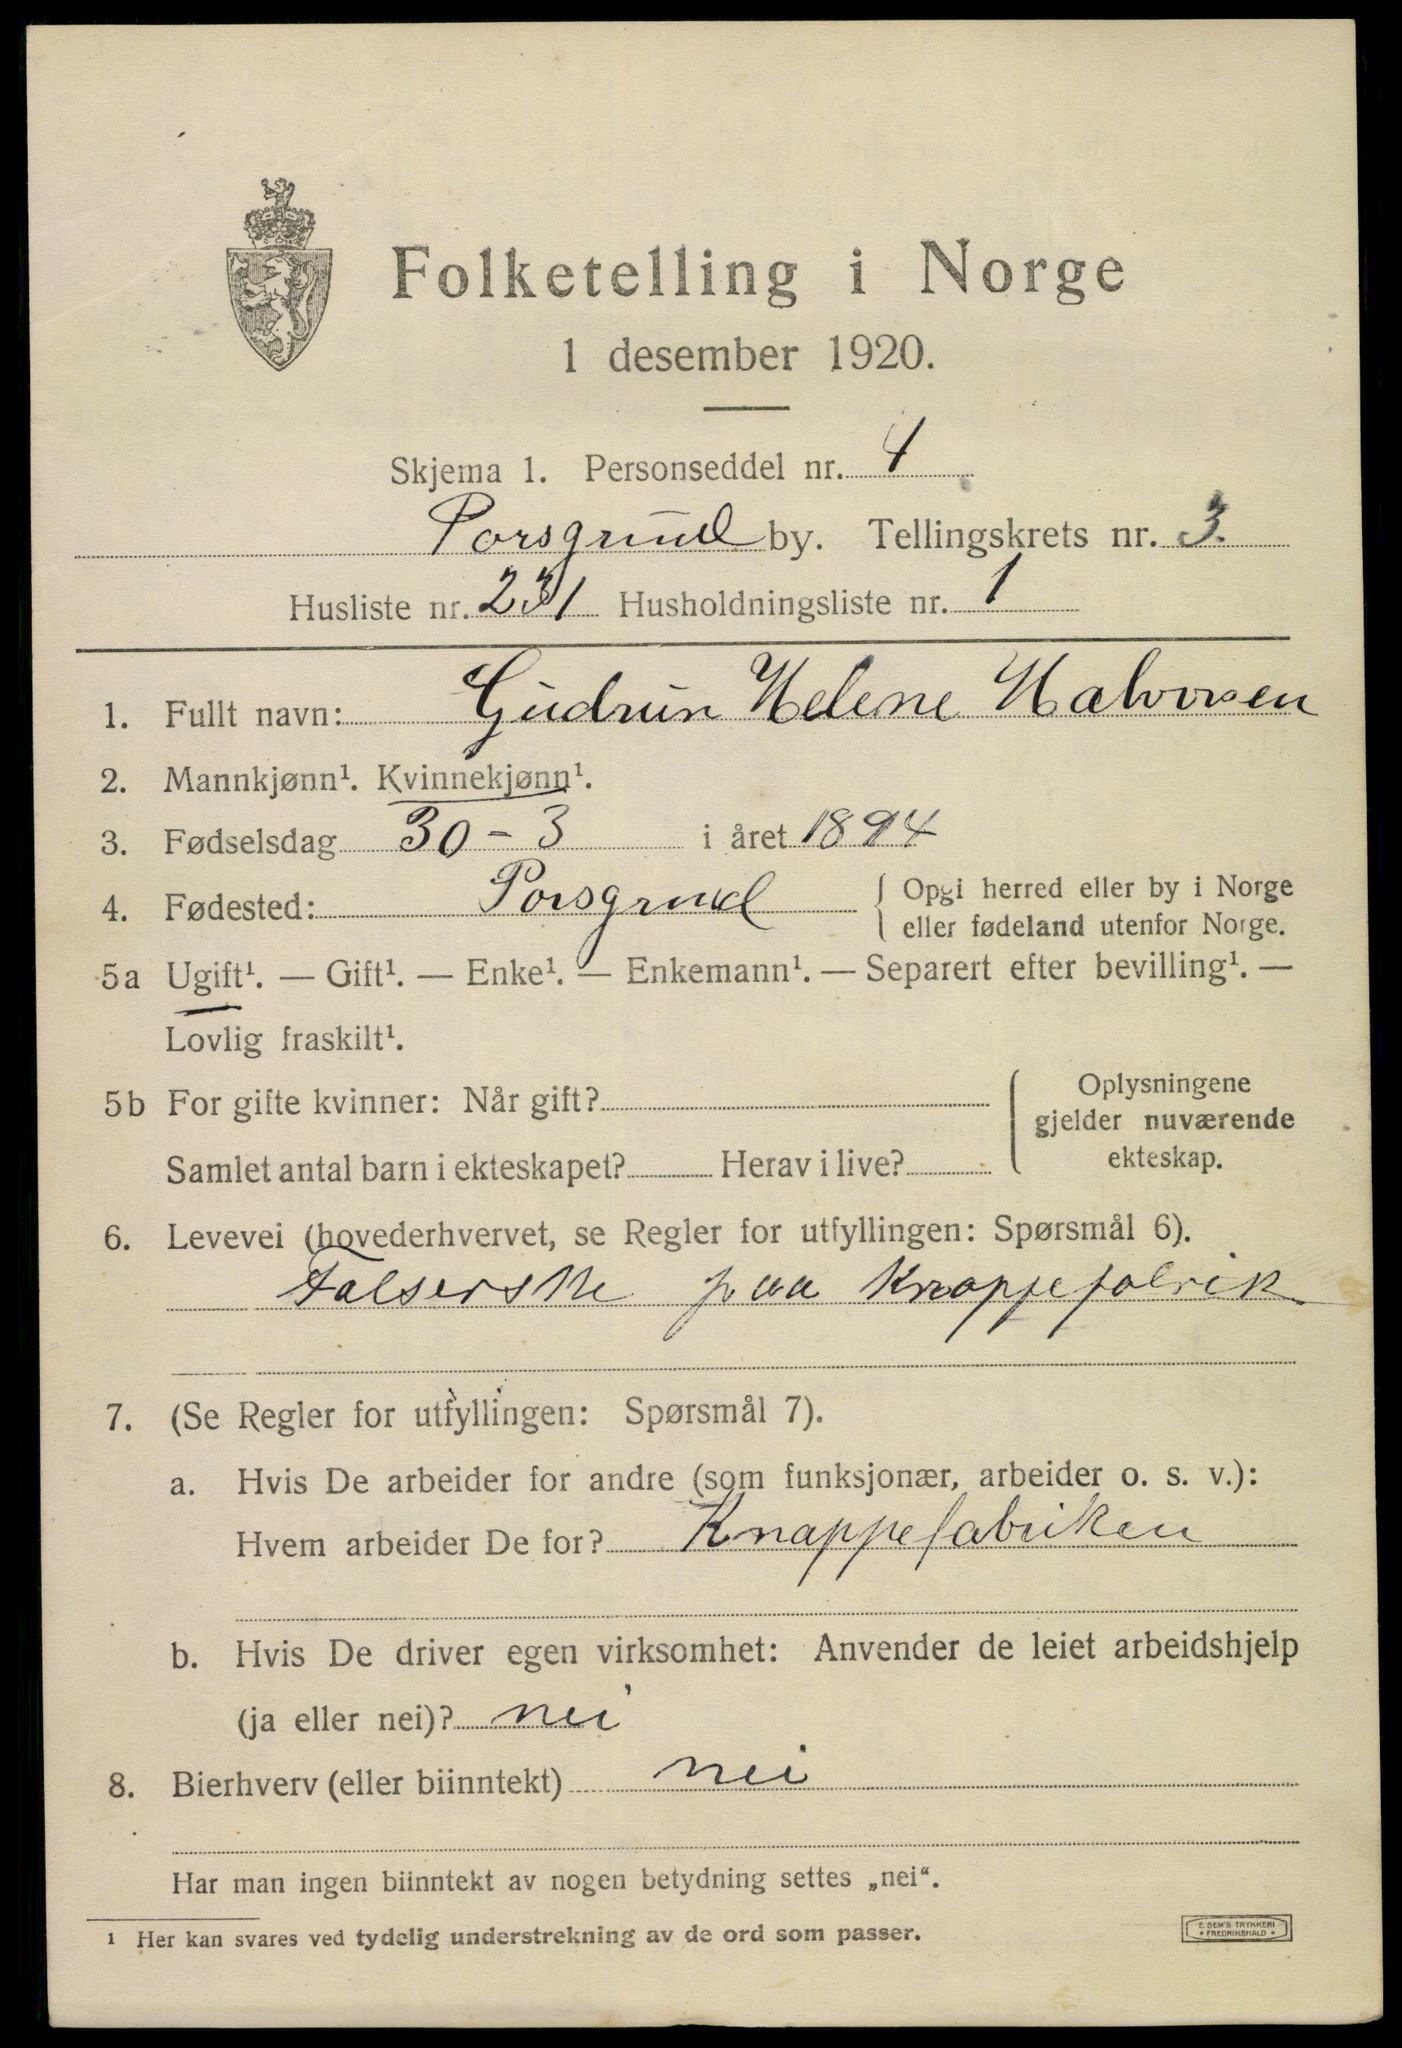 Folketelling i Norge
1 desember 1920.
Skjema 1. Personseddel nr. 4
Porsgrund by. Tellingskrets nr. 3.
Husliste nr. 231 Husholdningsliste nr. 1
1. Fullt navn: Gudrun Helene Halvorsen
2. Mannkjønn¹. Kvinnekjønn¹.
3. Fødselsdag 30 - 3 i året 1894
4. Fødested: Porsgrund { Opgi herred eller by i Norge
eller fødeland utenfor Norge.
5a Ugift¹. — Gift¹. — Enke¹. — Enkemann¹. — Separert efter bevilling¹. —
Lovlig fraskilt¹.
5b For gifte kvinner: Når gift?
Samlet antal barn i ekteskapet? Herav i live?
Oplysningene
gjelder nuværende
ekteskap.
6. Levevei (hovederhvervet, se Regler for utfyllingen: Spørsmål 6).
paa Knappefabrik
7. (Se Regler for utfyllingen: Spørsmål 7).
a. Hvis De arbeider for andre (som funksjonær, arbeider o. s. v.):
Hvem arbeider De for? Knappefabriken
b. Hvis De driver egen virksomhet: Anvender de leiet arbeidshjelp
(ja eller nei)? nei
8. Bierhverv (eller biinntekt) nei
Har man ingen biinntekt av nogen betydning settes „nei“.
¹ Her kan svares ved tydelig understrekning av de ord som passer.
E. SEM'S TRYKKERI
* FREDRIKSHALD *